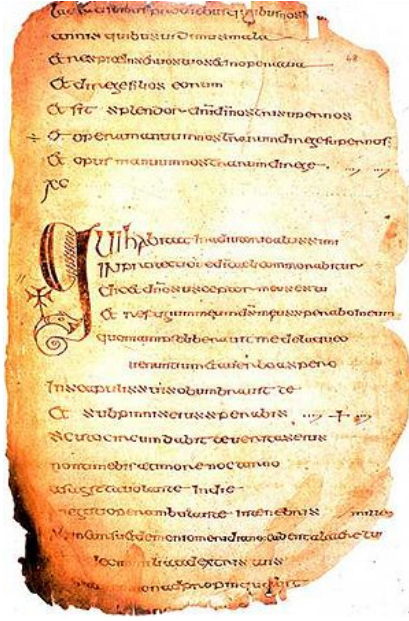 diebus quibus nos
annis quibus uidimus mala
Et respice in seruos tuos et in opera tua 48
Et dirige filios eorum
Et sit splendor dni di nostri super nos
÷ Et opera manuum nostrarum dirige super nos
Et opus manuum nostrarum dirige
XC
Qui habitat in adiutorio altissimi
IN protectione di caeli commorabitur
dicet dno susceptor meus es tu
Et refugium meum ds meus sperabo in eum
quoniam ipse liberauit me de laqueo
uenantium et a uerbo aspero
In scapulis suis obumbrauit te
Et sub pinnis eius sperabis
scuto circumdabit te ueritas eius
non timebis a timore nocturno
a sagitta uolante in die
negotio perambulante in tenebris mille
incursu et demonio meridiano cadent a latere tuo
decem milia a dextris tuis
non adpropinquabit